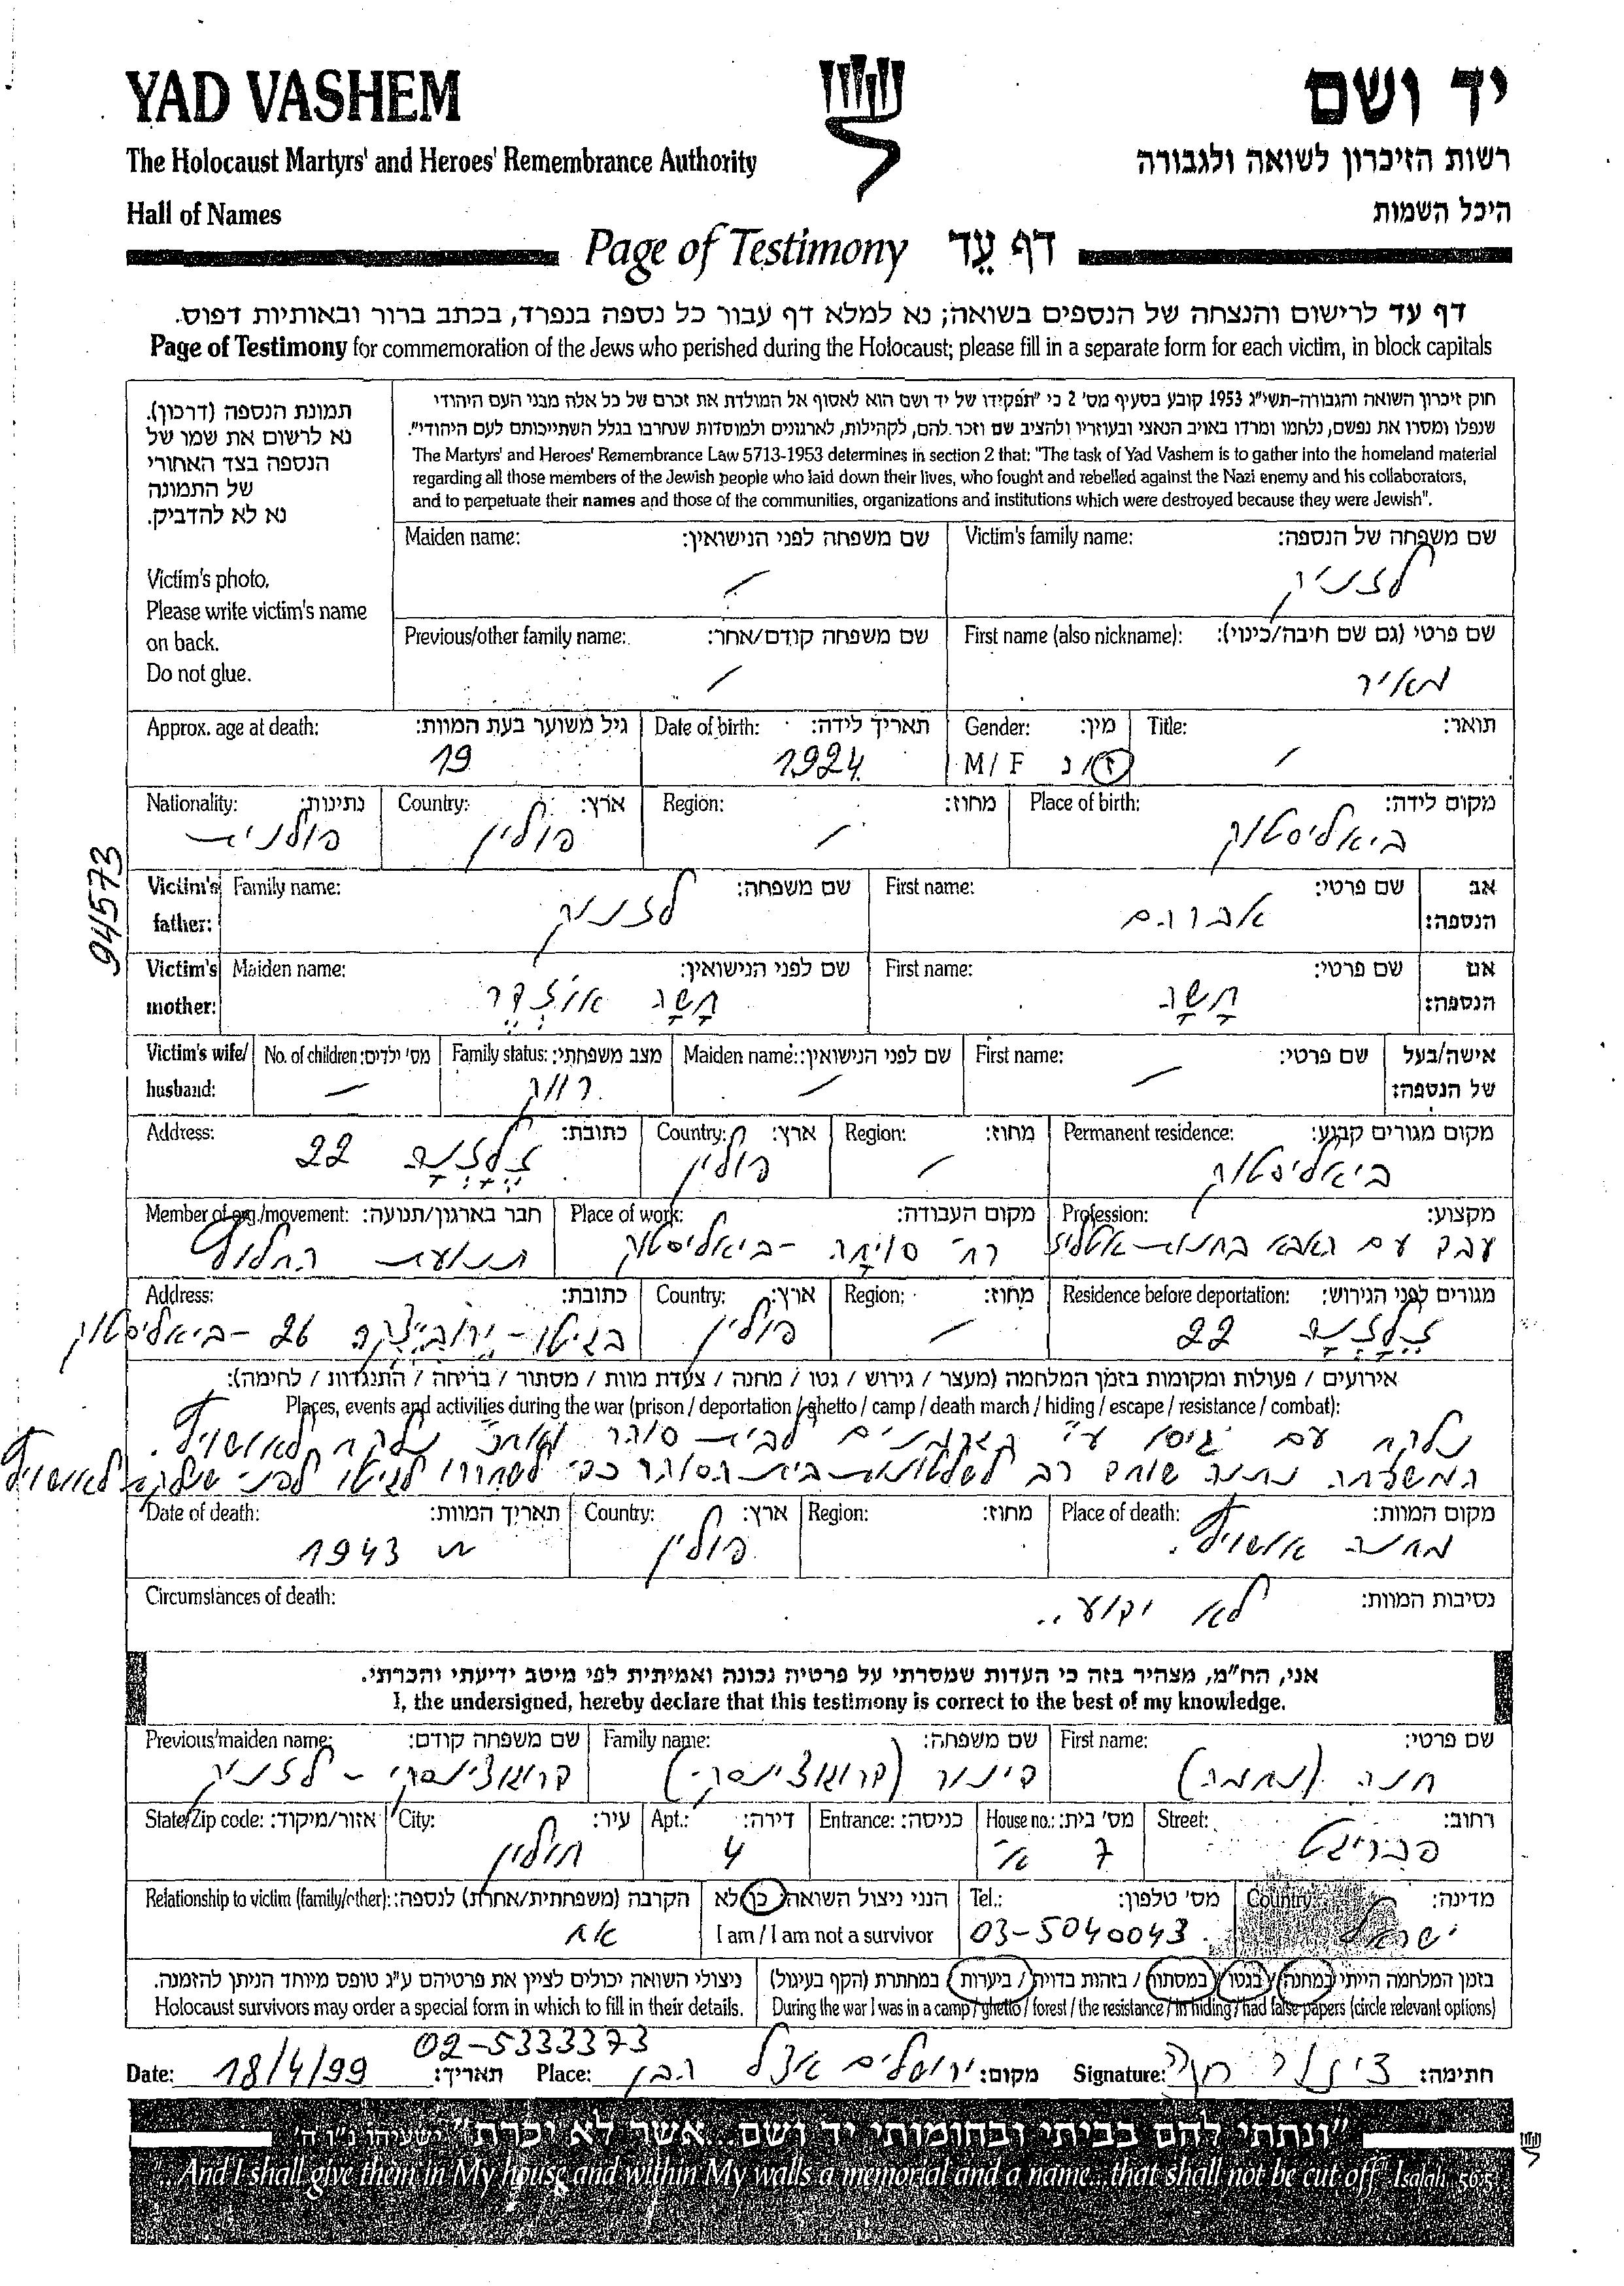 YAD VASHEM
יד ושם
The Holocaust Martyrs' and Heroes' Remembrance Authority
רשות הזיכרון לשואה ולגבורה
Hall of Names
היכל השמות
Page of Testimony דף עֵד
דף עד לרישום והנצחה של הנספים בשואה; נא למלא דף עבור כל נספה בנפרד, בכתב ברור ובאותיות דפוס.
Page of Testimony for commemoration of the Jews who perished during the Holocaust; please fill in a separate form for each victim, in block capitals
תמונת הנספה (דרכון).
נא לרשום את שמו של
הנספה בצד האחורי
של התמונה
נא לא להדביק.
Victim's photo.
Please write victim's name
on back.
Do not glue.
חוק זיכרון השואה והגבורה-תשי"ג 1953 קובע בסעיף מס' 2 כי "תפקידו של יד ושם הוא לאסוף אל המולדת את זכרם של כל אלה מבני העם היהודי
שנפלו ומסרו את נפשם, נלחמו ומרדו באויב הנאצי ובעוזריו ולהציב שם וזכר להם, לקהילות, לארגונים ולמוסדות שנחרבו בגלל השתייכותם לעם היהודי".
The Martyrs' and Heroes' Remembrance Law 5713-1953 determines in section 2 that: "The task of Yad Vashem is to gather into the homeland material
regarding all those members of the Jewish people who laid down their lives, who fought and rebelled against the Nazi enemy and his collaborators,
and to perpetuate their names and those of the communities, organizations and institutions which were destroyed because they were Jewish".
Maiden name: שם משפחה לפני הנישואין: Victim's family name: שם משפחה של הנספה:
/ לזניק
Previous/other family name: שם משפחה קודם/אחר: First name (also nickname): שם פרטי (גם שם חיבה/כינוי):
/ מאיר
Approx. age at death: גיל משוער בעת המוות: Date of birth: תאריך לידה: Gender: מין: Title: תואר:
19 1924 M/F ז/נ /
Nationality: נתינות: Country: ארץ: Region: מחוז: Place of birth: מקום לידה:
פולנית פולין / ביאליסטוק
94573
Victim's father: Family name: שם משפחה: First name: שם פרטי: אב הנספה:
לזניק אברהם
Victim's mother: Maiden name: שם לפני הנישואין: First name: שם פרטי: אם הנספה:
חָשָה
Victim's wife/ husband: No. of children: מס' ילדים: Family status: מצב משפחתי: Maiden name: שם לפני הנישואין: First name: שם פרטי: אישה/בעל של הנספה:
— רווק / —
Address: כתובת: Country: ארץ: Region: מחוז: Permanent residence: מקום מגורים קבוע:
22 פולין / ביאליסטוק
Member of org./movement: חבר בארגון/תנועה: Place of work: מקום העבודה: Profession: מקצוע:
תנועת החלוץ ביאליסטוק עבד עם האבא בחנות אטליז
Address: כתובת: Country: ארץ: Region: מחוז: Residence before deportation: מגורים לפני הגירוש:
בגיטו 26 - ביאליסטוק פולין / 22
אירועים / פעולות ומקומות בזמן המלחמה (מעצר / גירוש / גטו / מחנה / צעדת מוות / מסתור / בריחה / התנגדות / לחימה):
Places, events and activities during the war (prison / deportation / ghetto / camp / death march / hiding / escape / resistance / combat):
נלקח עם גיסו ע"י הגרמנים לבית סוהר ואח"כ נלקח לאושוויץ.
המשפחה נתנה שוחד רב לשלטונות בית הסוהר כדי לשחררו לגיטו לפני שנלקח לאושוויץ
Date of death: תאריך המוות: Country: ארץ: Region: מחוז: Place of death: מקום המוות:
1943 פולין מחנה אושוויץ.
Circumstances of death: נסיבות המוות:
לא ידוע..
אני, הח"מ, מצהיר בזה כי העדות שמסרתי על פרטיה נכונה ואמיתית לפי מיטב ידיעתי והכרתי.
I, the undersigned, hereby declare that this testimony is correct to the best of my knowledge.
Previous/maiden name: שם משפחה קודם: Family name: שם משפחה: First name: שם פרטי:
לזניק חנה (נחמה)
State/Zip code: אזור/מיקוד: City: עיר: Apt.: דירה: Entrance: כניסה: House no.: מס' בית: Street: רחוב:
חולון 4 7 א'
Relationship to victim (family/other): הקרבה (משפחתית/אחרת) לנספה: הנני ניצול השואה: כן/לא Tel.: מס' טלפון: Country: מדינה:
אח I am / I am not a survivor 03-5040043 ישראל
ניצולי השואה יכולים לציין את פרטיהם ע"ג טופס מיוחד הניתן להזמנה. בזמן המלחמה הייתי במחנה/בגטו/במסתור/בזהות בדויה/ביערות/במחתרת (הקף בעיגול)
Holocaust survivors may order a special form in which to fill in their details. During the war I was in a camp / ghetto / forest / the resistance / in hiding / had false papers (circle relevant options)
02-5333373
Date: 18/4/99 תאריך: Place: ירושלים אצל הבן מקום: Signature: חנה חתימה:
"ונתתי להם בביתי ובחומותי יד ושם...אשר לא יכרת" ישעיהו נ"ו ה'
...And I shall give them in My house and within My walls a memorial and a name...that shall not be cut off." Isaiah, 56:5